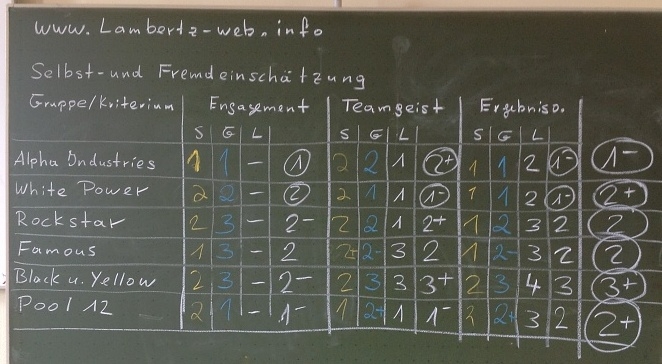 www. Lambertz-web.info
Selbst- und Fremdeinschätzung
Gruppe/Kriterium Engagement Teamgeist Ergebniso.
S G L S G L S G L
Alpha Industries 1 1 - 1 2 2 1 2+ 1 1 2 1- 1-
White Power 2 2 - 2 2 1 1 1- 1 1 2 1- 2+
Rockstar 2 3 - 2- 2 2 1 2+ 1 2 3 2 2
Famous 1 3 - 2 2± 2- 3 2 1 2- 3 2 2
Black u. Yellow 2 3 - 2- 2 3 3 3+ 2 3 4 3 3+
Pool 12 2 1 - 1- 1 2+ 1 1- 2 2+ 3 2 2+